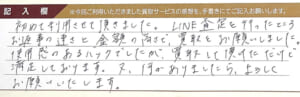 記入欄 ※今回ご利用いただきました買取サービスの感想を、手書きにてご記入お願いします。
初めて利用させて頂きました。LINE査定を行ったところ
お返事の速さと金額の高さで、買取をお願いしました。
使用感のあるバッグでしたが買取して頂けただけで
満足しております。又、何かありましたら、よろしく
お願いいたします。